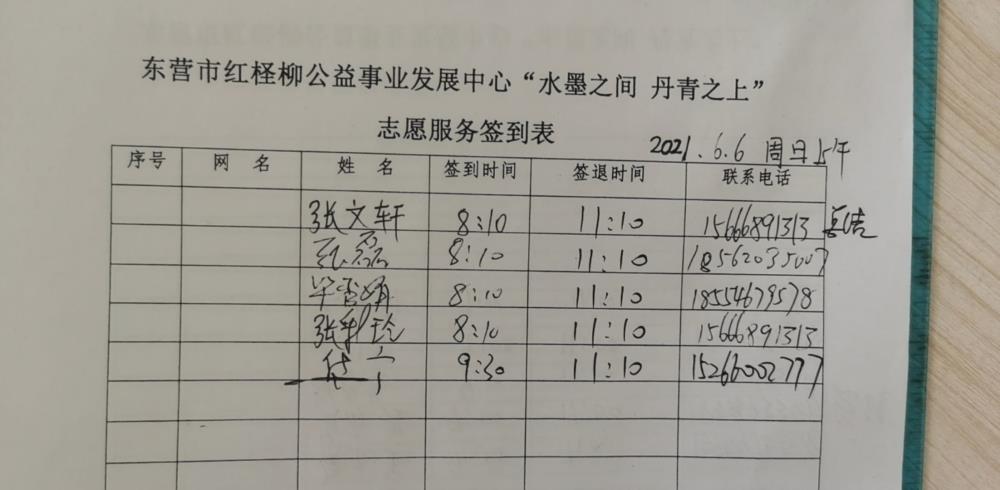 东营市红柽柳公益事业发展中心“水墨之间 丹青之上”
志愿服务签到表
2021.6.6 周日上午
序号 网 名 姓 名 签到时间 签退时间 联系电话
张文轩 8:10 11:10 15666891313
张磊 8:10 11:10 18562035007
8:10 11:10 18554679578
张 8:10 11:10 15666891313
9:30 11:10 15266002777